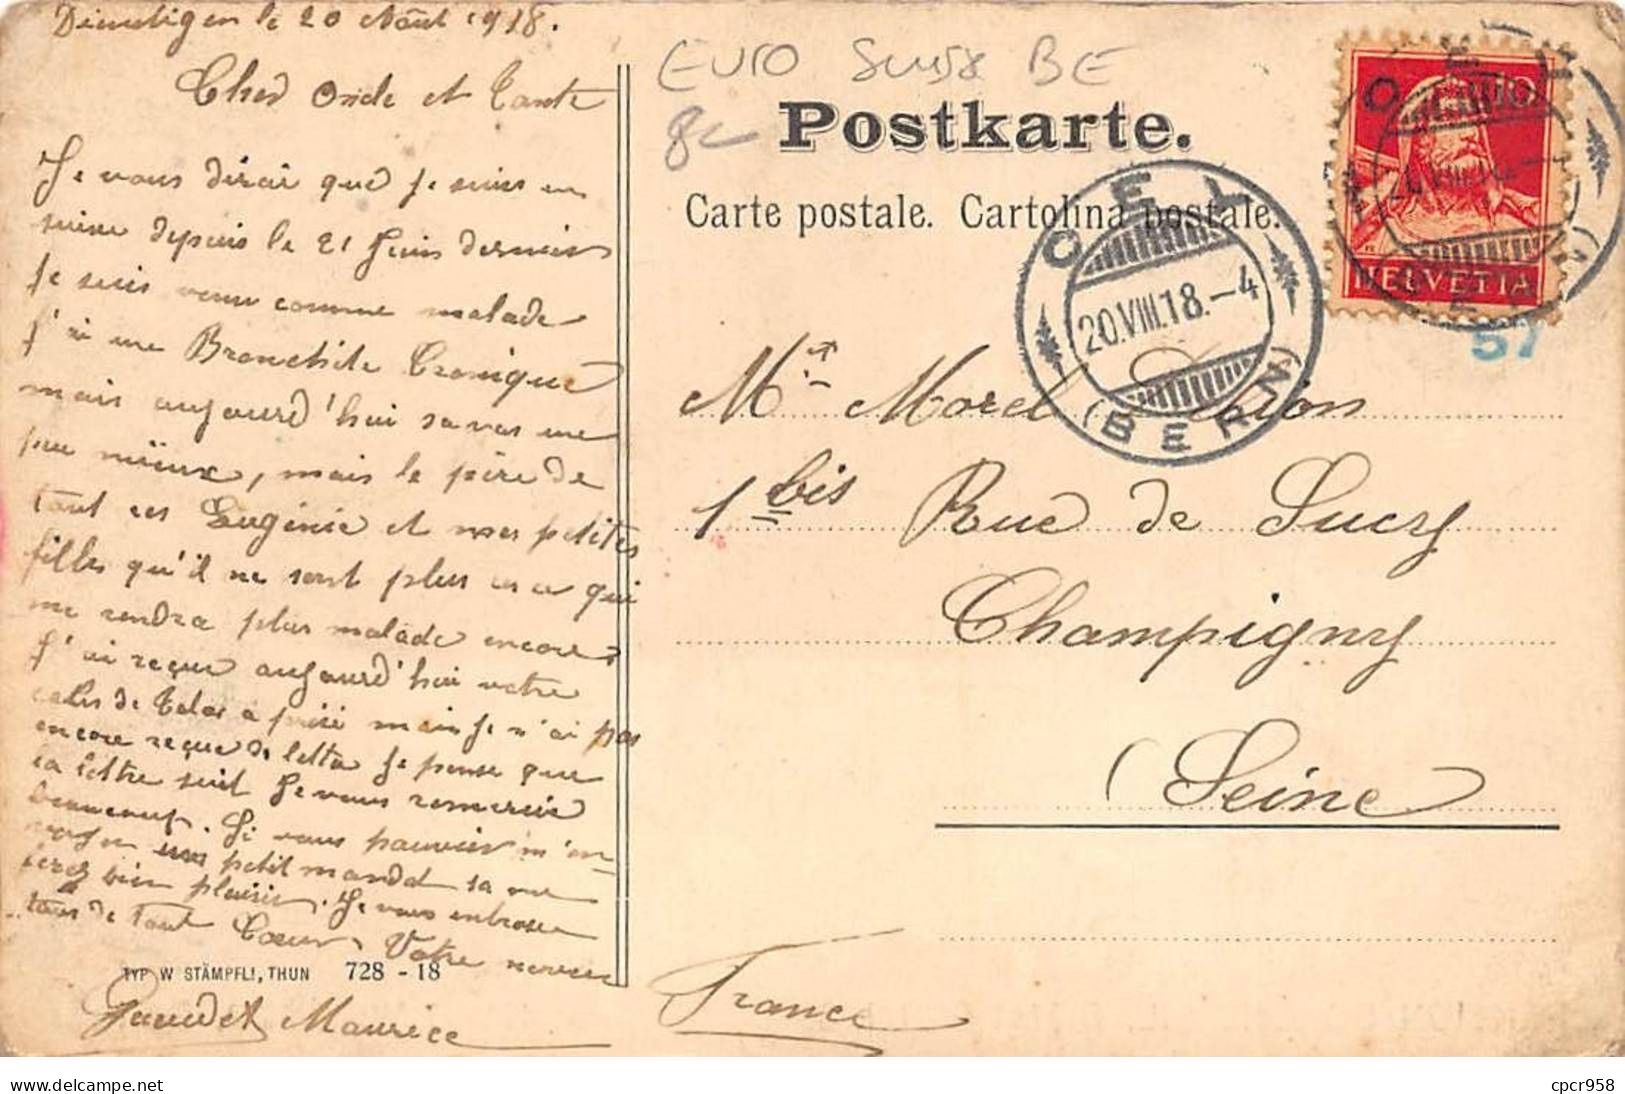 Diemtigen le 20 Août 1918.
Cher Oncle et Tante
Je vous dirai que je suis en
suisse depuis le 21 Juin dernier
Je suis venu comme malade
j'ai une Bronchite Cronique
mais aujourd'hui sa vas une
peu mieux, mais le pire de
tout ces Eugénie et mes petites
filles qu'il ne sont plus es ce qui
me rendra plus malade encore
j'ai reçue aujourd'hui votre
colis de Tabac à prisé mais je n'ai pas
encore reçue de lettre je pense que
la lettre suit Je vous remercie
beaucoup. Si vous pouvier m'en
voyer un petit mandat sa me
ferez bien plaisir. Je vous enbrasse
tous de tout Cœur, Votre neveu
Maurice
TYP W STÄMPFLI, THUN 728 - 18
EURO Suisse BE
8c
Postkarte.
Carte postale. Cartolina postale.
OEY
20.VIII.18.-4
(BERN)
HELVETIA
57
Mr Morel
1 bis Rue de Sucy
Champigny
(Seine
France
cpcr958